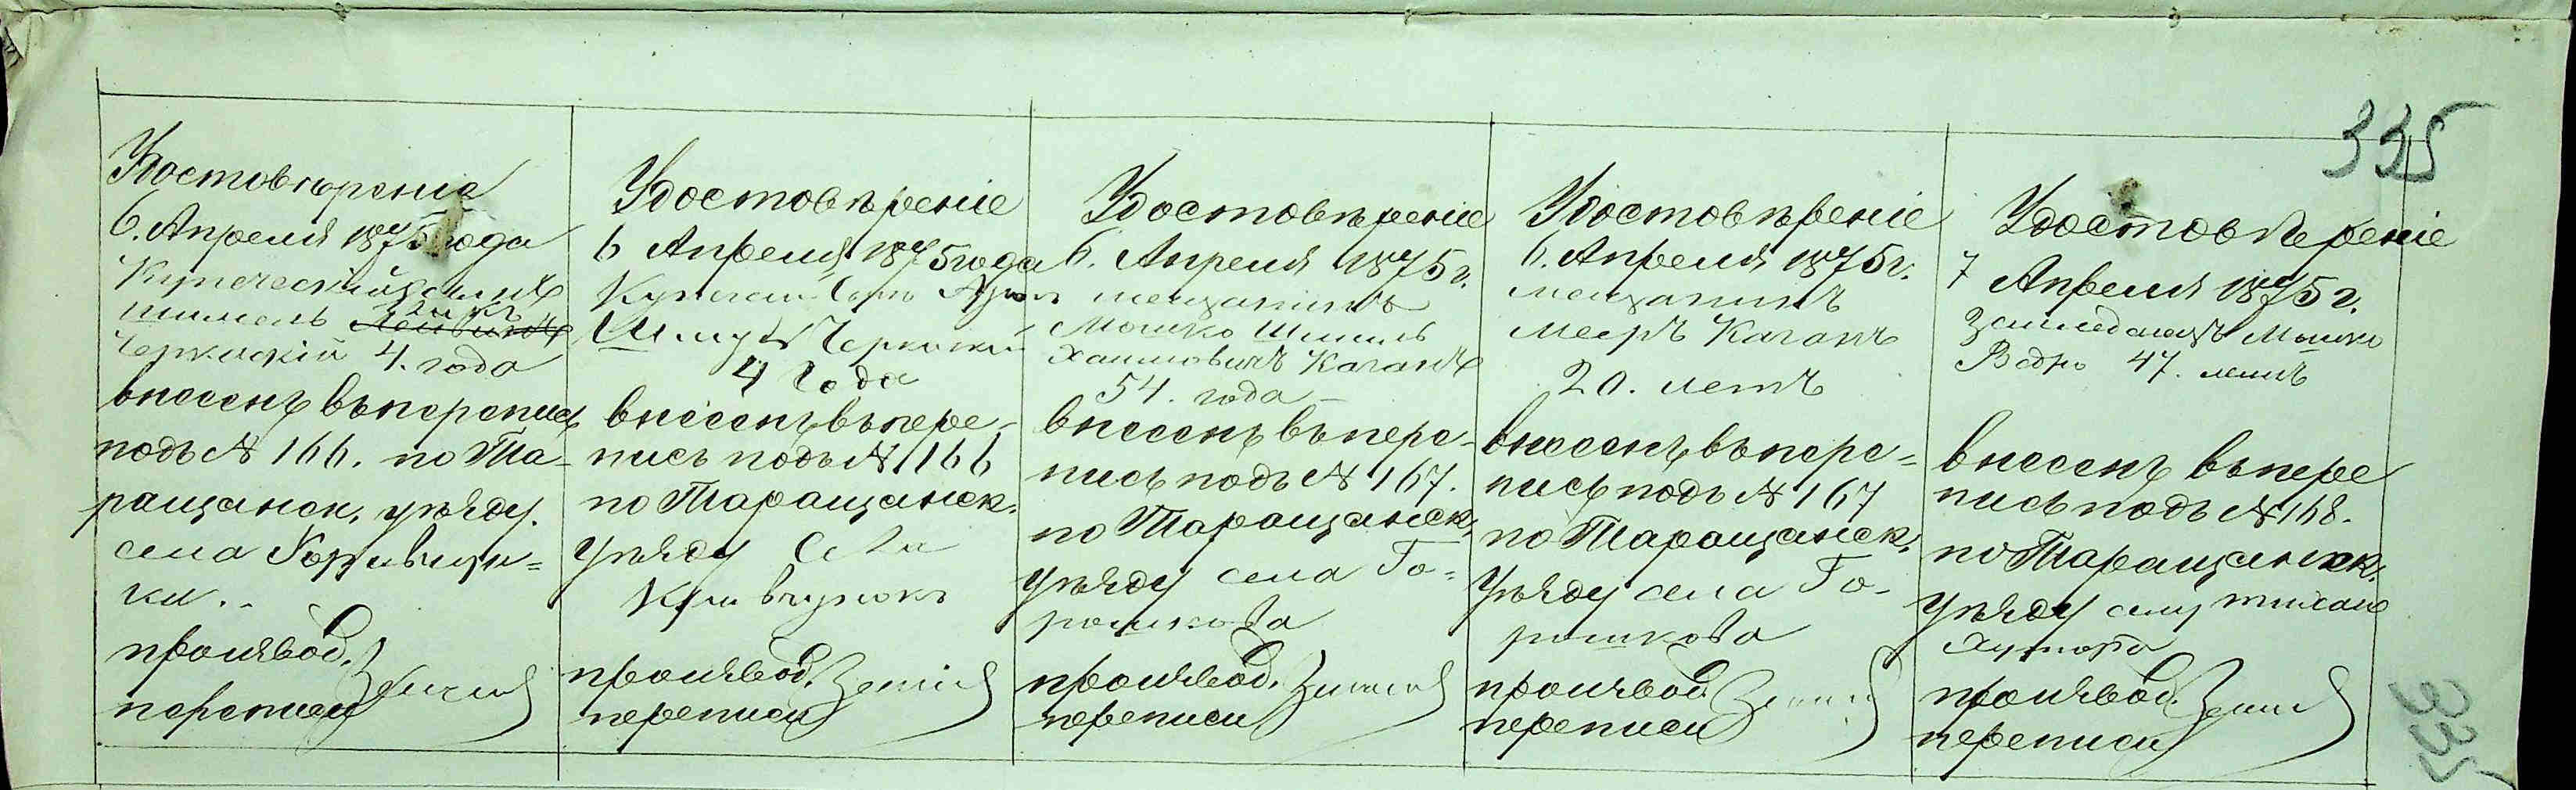 335
Удостовѣреніе
6. Апреля 1875 года
Купеческій сынъ
Шимель
Черкаскій 4. года
внесенъ въ перепись
подъ № 166. по Та-
ращанск. уѣзду.
села
ки..
производ.
переписи
Удостовѣреніе
6 Апреля 1875 года
4 года
внесенъ въ пере-
пись подъ № 166
по Таращанск.
уѣзду Села
производ.
переписи
Удостовѣреніе
6. Апреля 1875 г.
мещанинъ
Мошко Шимель
Хаимовичъ Каганъ
54. года
внесенъ въ пере-
пись подъ № 167.
по Таращанск.
уѣзду села Го-
рошкова
производ.
переписи
Удостовѣреніе
6. Апреля 1875 г.
мещанинъ
Мееръ Каганъ
20. летъ
внесенъ въ пере-
пись подъ № 167
по Таращанск.
уѣзду села Го-
рошкова
производ.
переписи
Удостовѣреніе
7 Апреля 1875 г.
Мошко
47. летъ
внесенъ въ пере
пись подъ № 168.
по Таращанск.
уѣзду
хутора
производ.
переписи
335